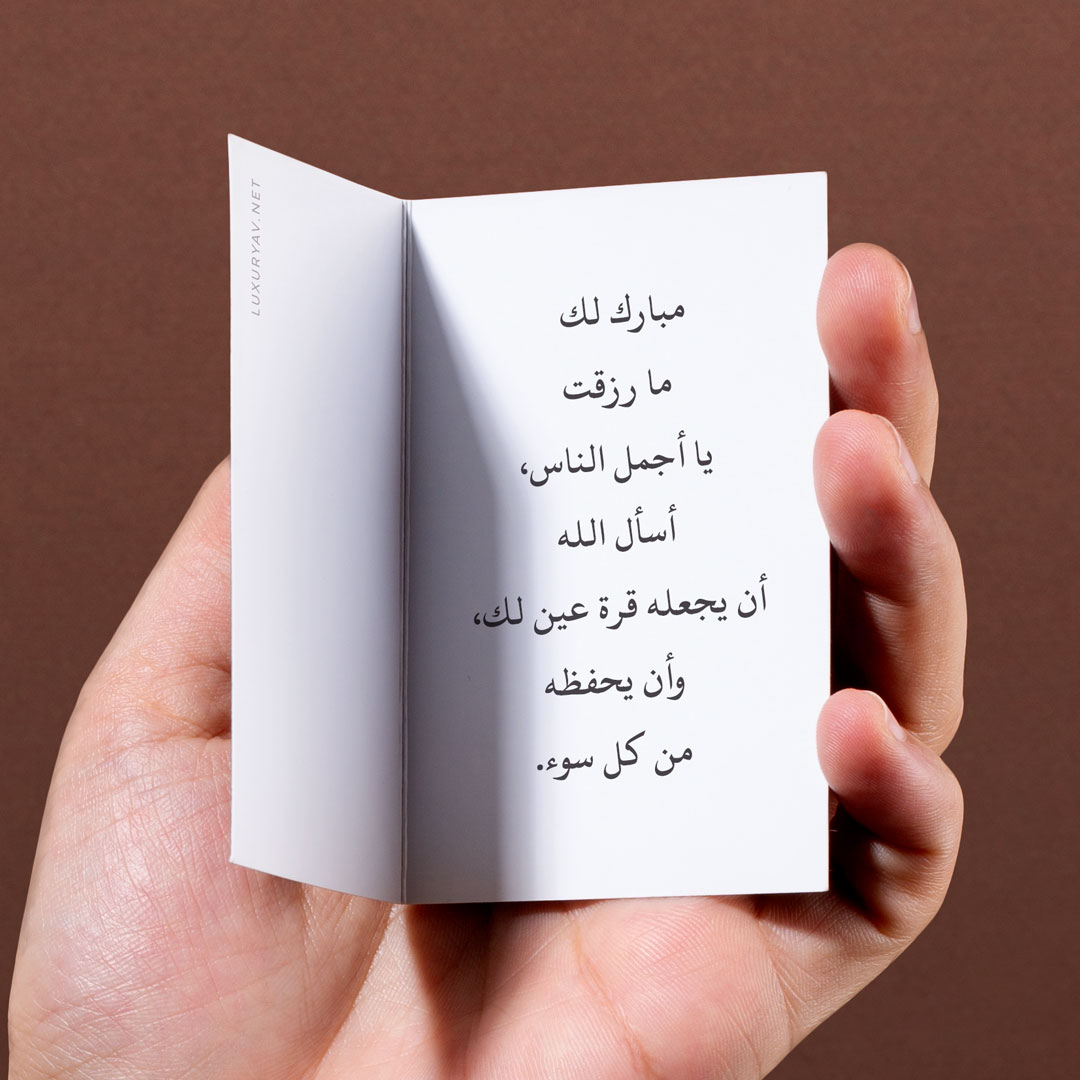 LUXURYAV.NET
مبارك لك
ما رزقت
يا أجمل الناس،
أسأل الله
أن يجعله قرة عين لك،
وأن يحفظه
من كل سوء.